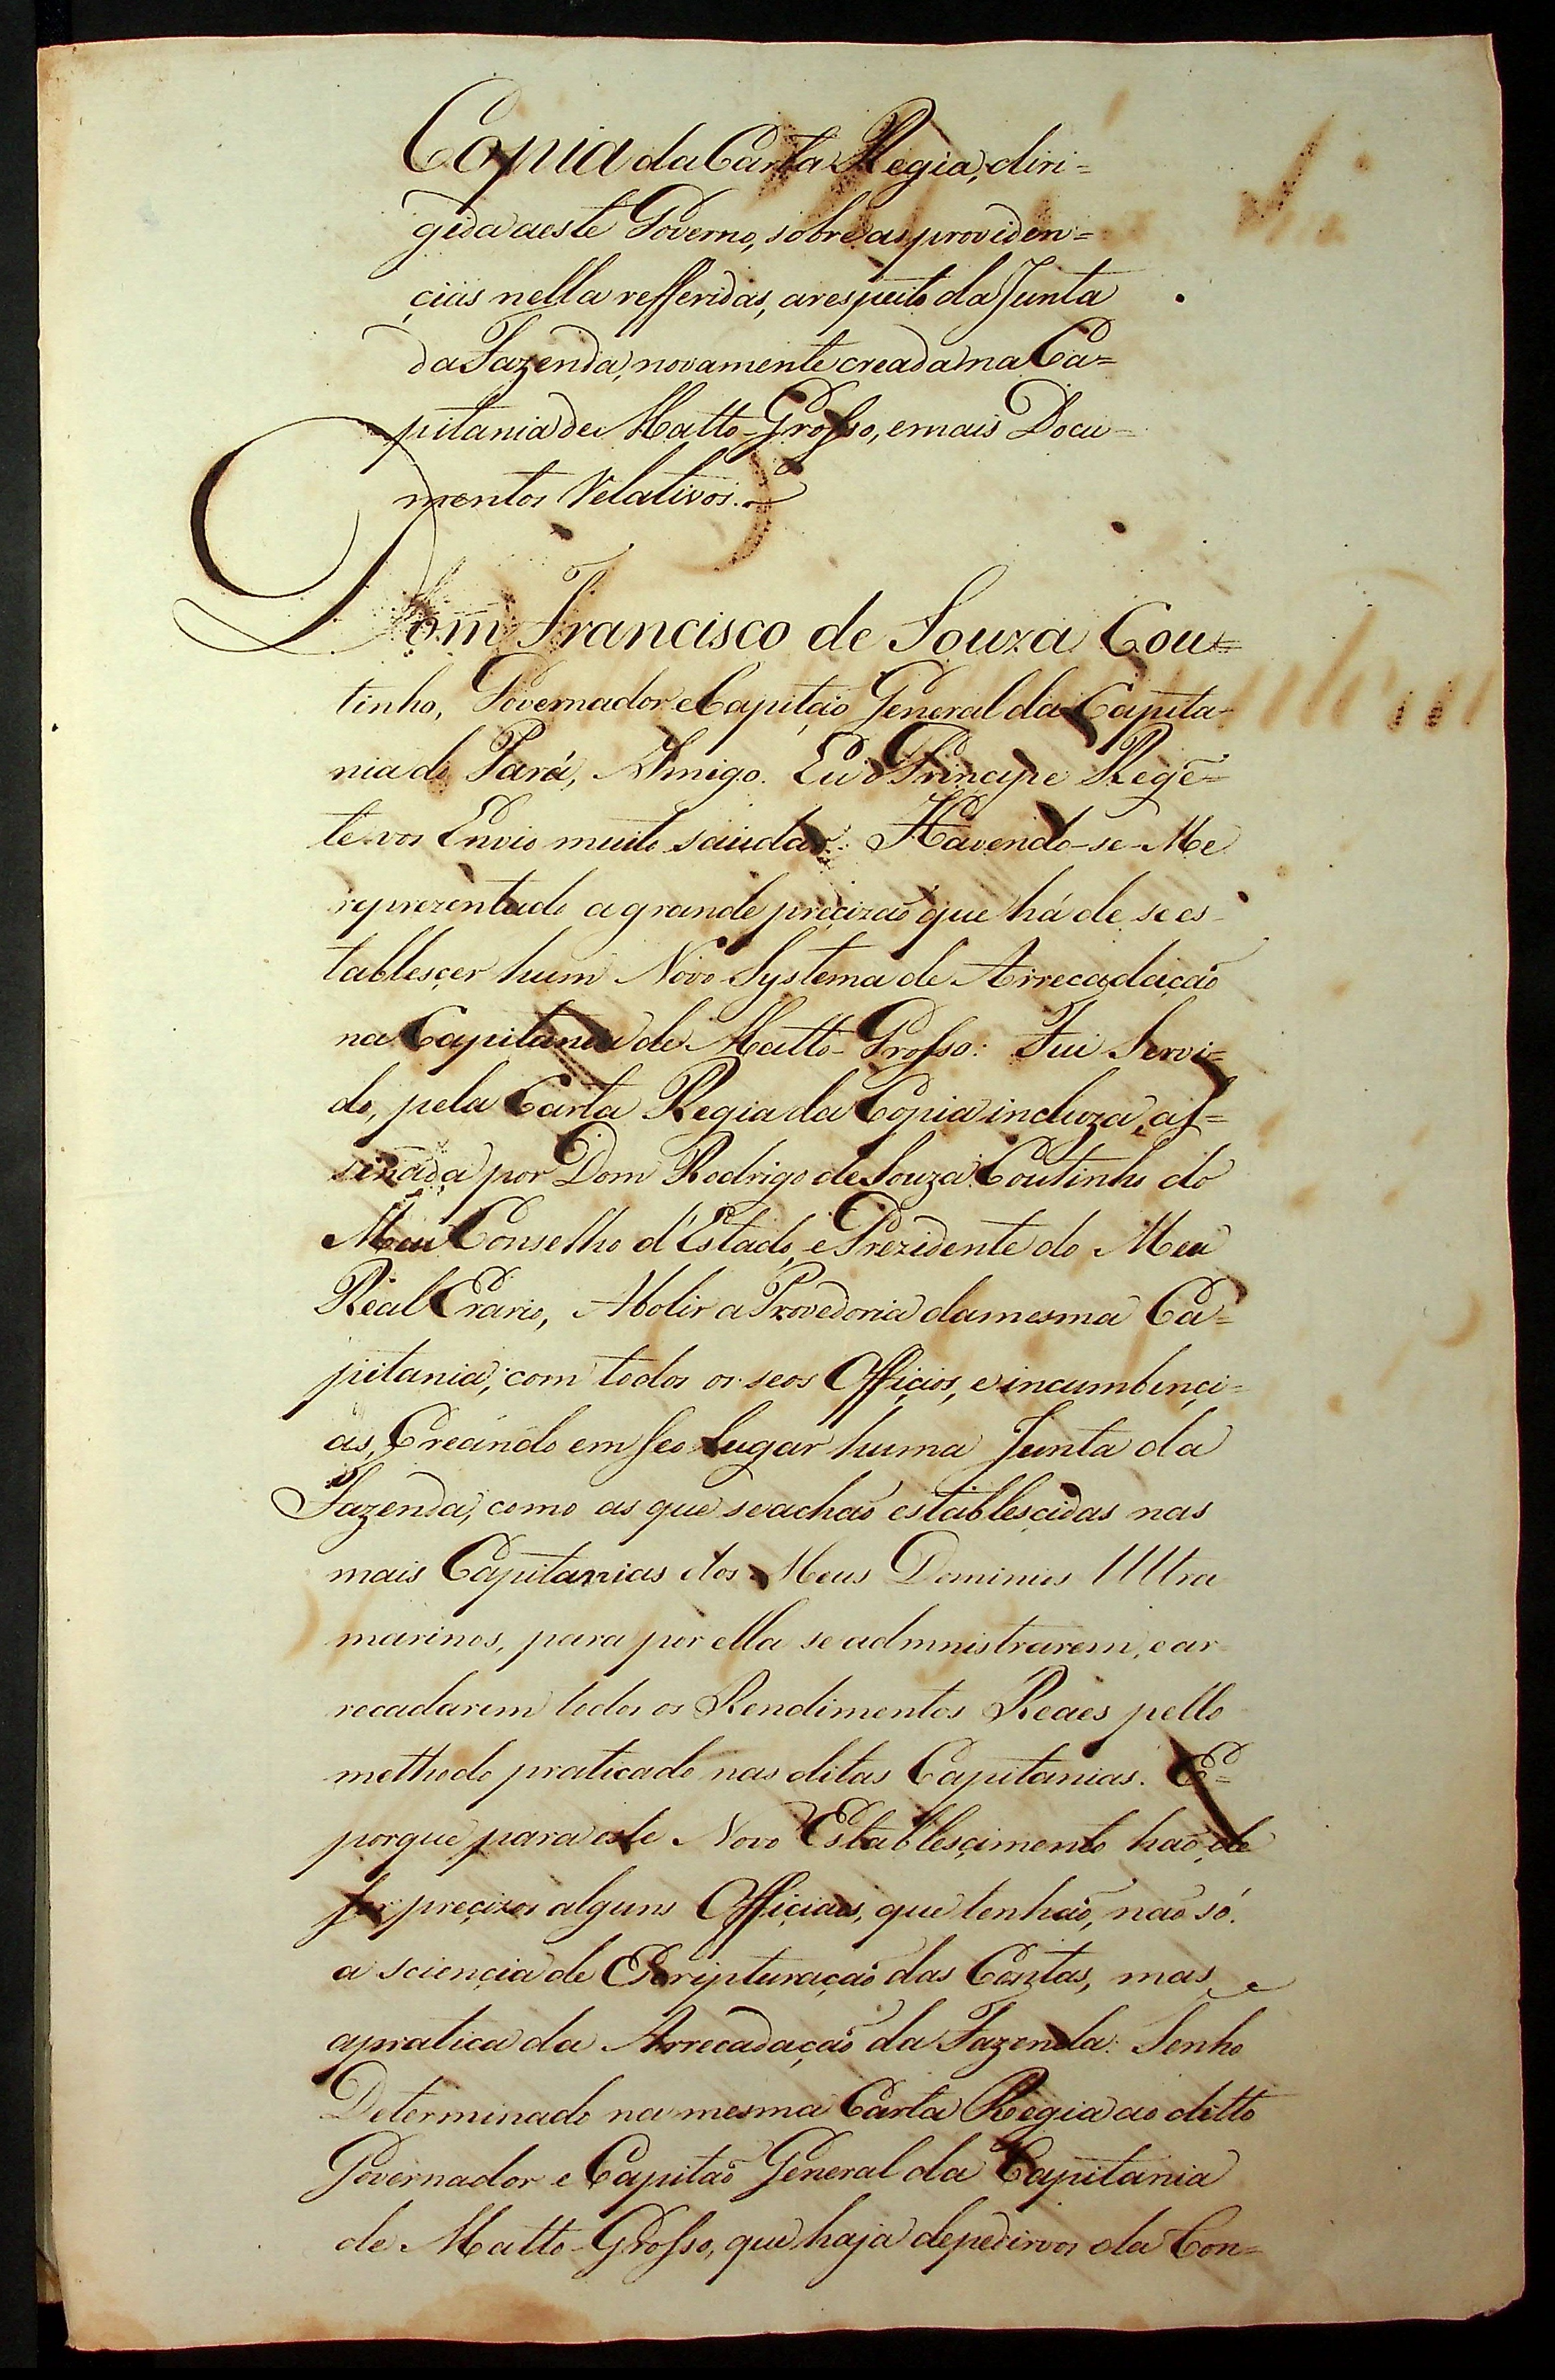 Copia da Carta Regia, diri=
gida a este Governo, sobre as providen=
çias nella refferidas, a respeito da Junta
da Fazenda, novamente creada na Ca=
pitania de Matto-Grosso, e mais Docu=
mentos Relativos.
Dom Francisco de Souza Cou=
tinho, Governador e Capitão General da Capita-
nia do Pará, Amigo. Eu o Principe Regē=
te vos Envio muito saudar. Havendo-se-Me
reprezentado a grande precizão que há de se es-
tablesçer hum Novo Systema de Arrecadação
na Capitania de Matto-Grosso: Fui Servi=
do, pela Carta Regia da Copia incluza, as=
sinada por Dom Rodrigo de Souza Coutinho do
Meu Conselho d'Estado, e Prezidente do Meu
Real Erario, Abolir a Provedoria da mesma Ca=
pitania, com todos os seos Offiçios, e incumbençi=
as, Creando em seo Lugar huma Junta da
Fazenda, como as que se achão establesçidas nas
mais Capitanias dos Meus Dominios Ultra
marinos, para por ella se admnistrarem, e ar
recadarem todos os Rendimentos Reaes pello
methodo praticado nas ditas Capitanias. E=
porque para este Novo Establesçimento hão de
ser preçizos alguns Offiçiaes, que tenhão, não só
a sciençia de Escripturação das Contas, mas
a pratica da Arrecadação da Fazenda: Tenho
Determinado na mesma Carta Regia ao ditto
Governador e Capitão General da Capitania
de Matto-Grosso, que haja de pedirvos da Con=